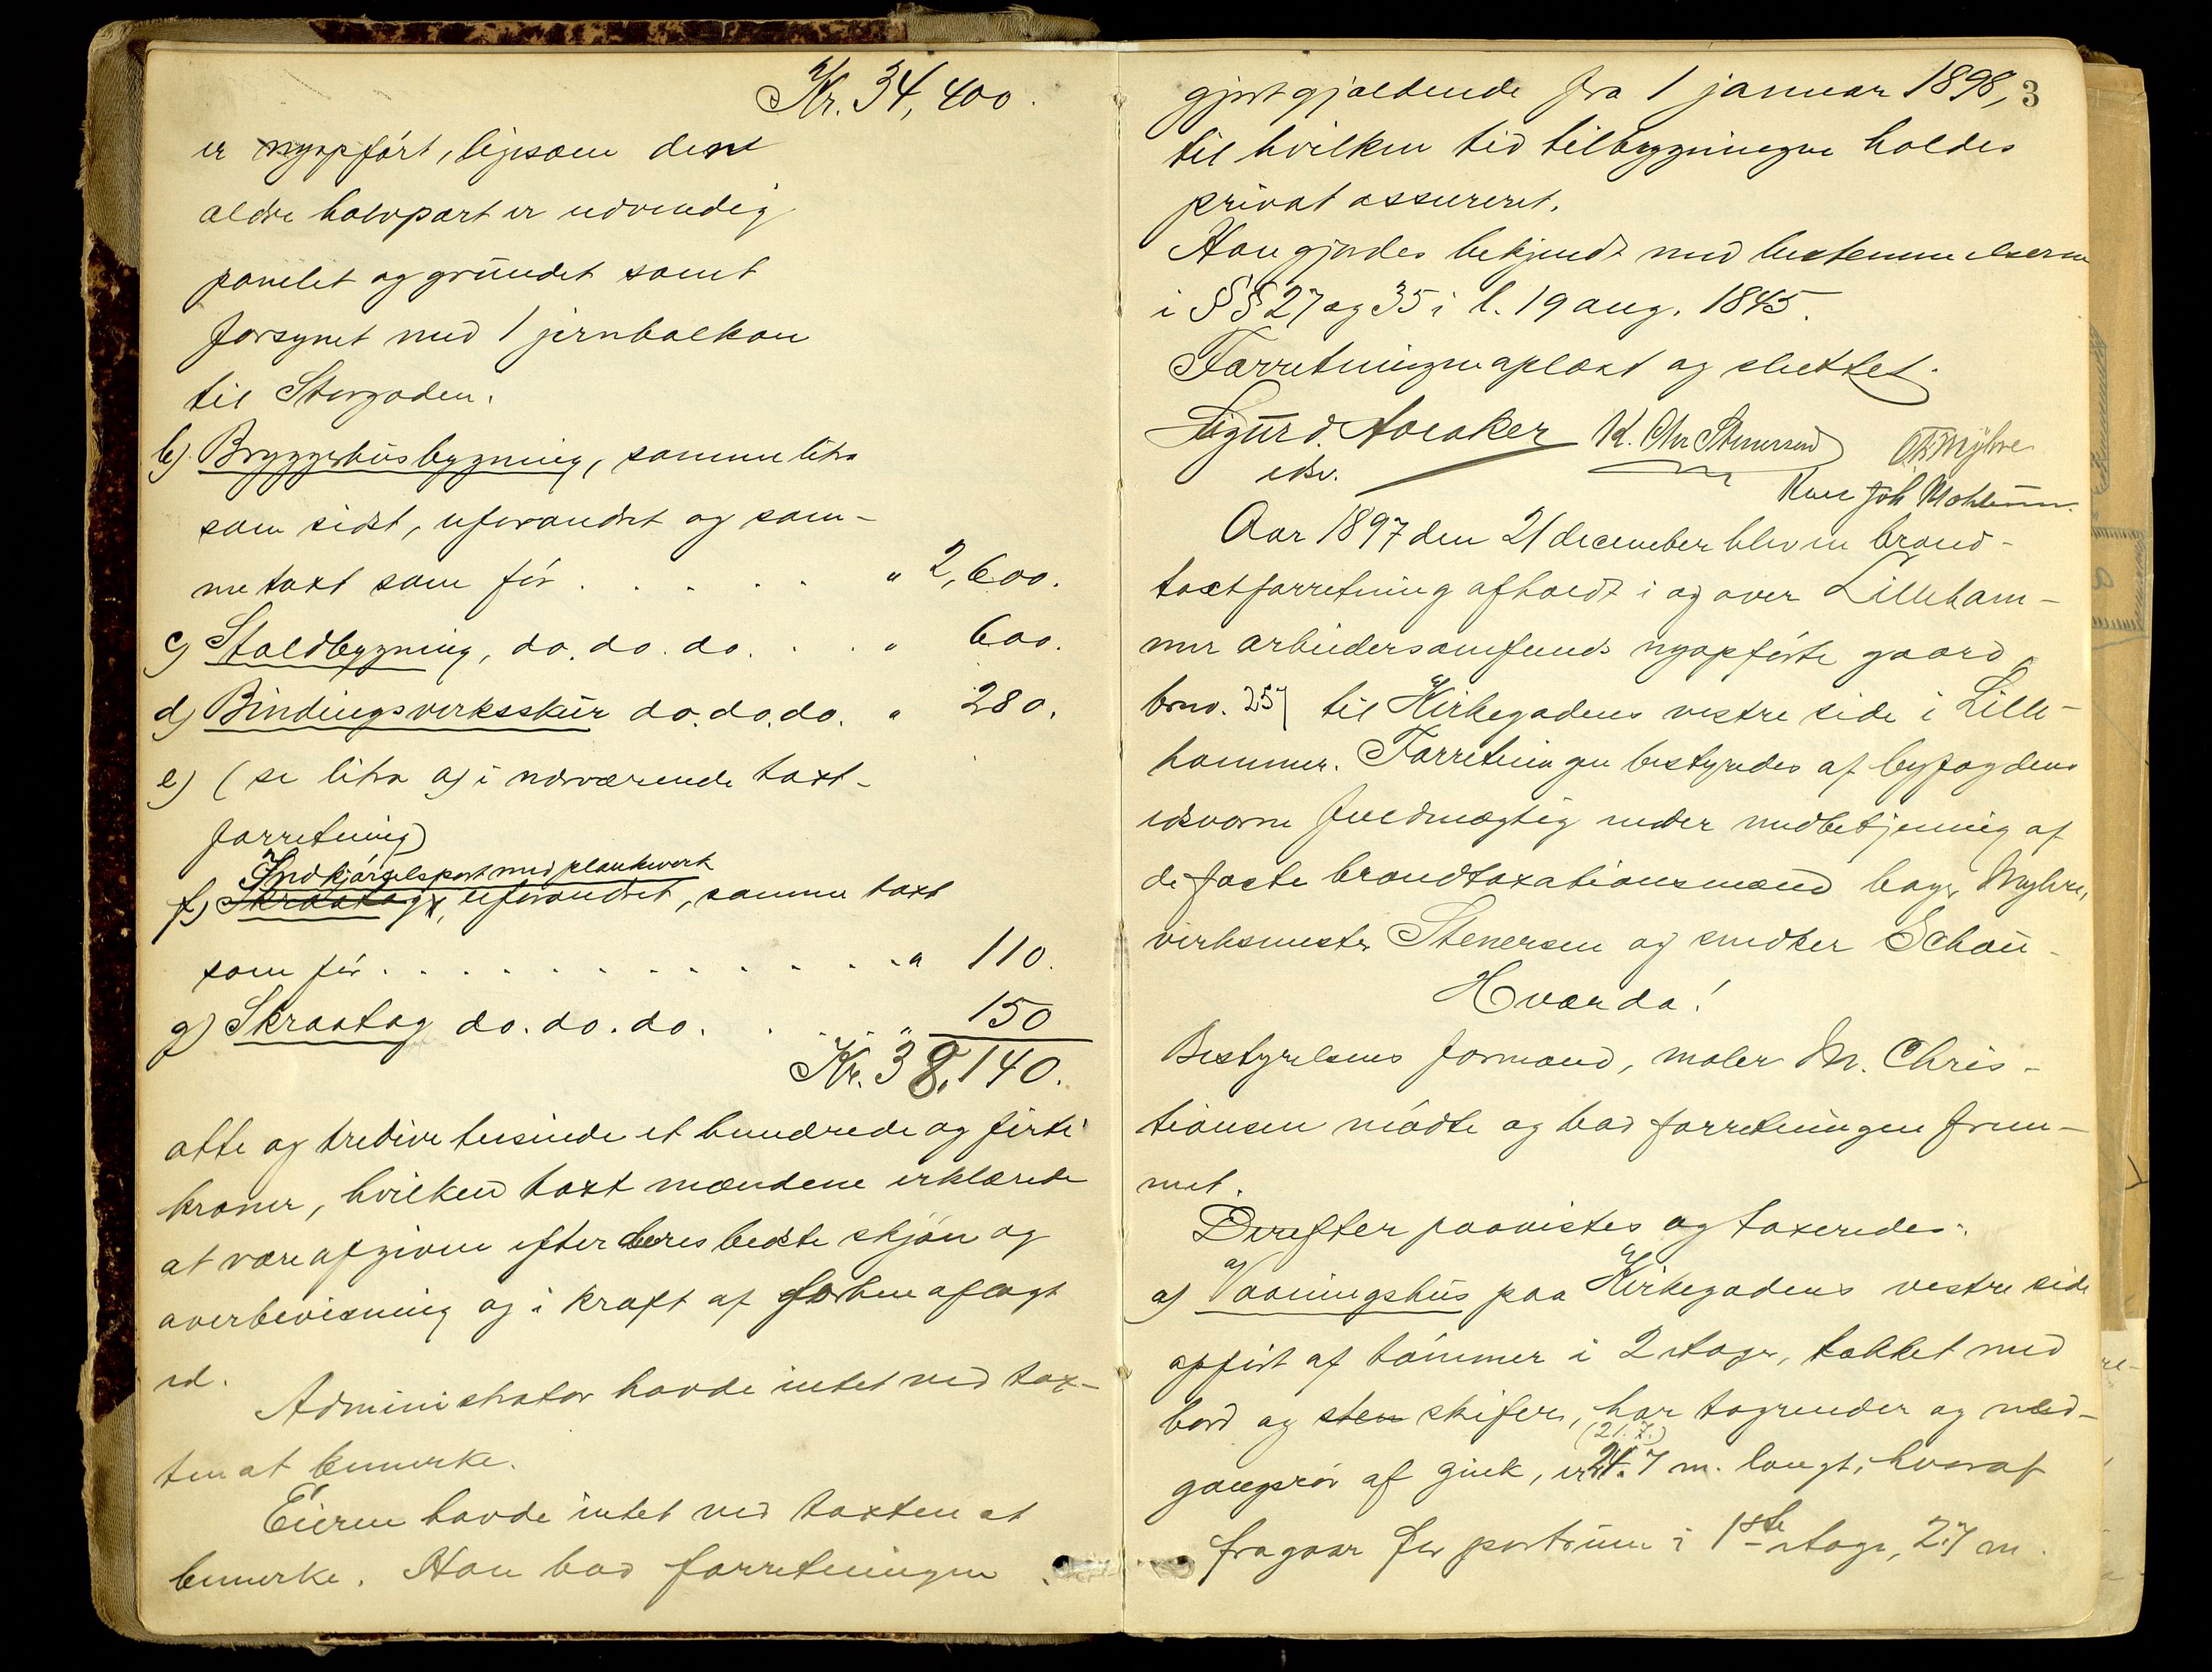 Kr. 34,400.
er nyopført, ligesom den
ældre halvpart er udvendig
panelet og grundet samt
forsynet med 1 jernbalkon
til Storgaden.
b) Bryggerhusbygning, samme litra
som sidst, uforandret og sam-
me taxt som før . . . . . " 2,600.
c) Staldbygning, do. do. do. . . " 600.
d) Bindingsverksskur do. do. do. " 280.
e) (se litra a) i nærværende taxt-
forretning)
Indkjørselsport med plankeverk
f) Skraatag, uforandret, samme taxt
som før . . . . . . . . . . . . " 110.
g) Skraatag do. do. do. . . . " 150
Kr. 38,140.
otte og tredive tusinde et hundrede og firti
kroner, hvilken taxt mændene erklærede
at være afgiven efter deres bedste skjøn og
overbevisning og i kraft af forhen aflagt
ed.
Administrator havde intet ved tax-
ten at bemerke.
Eieren havde intet ved taxten at
bemerke. Han bad forretningen
gjort gjældende fra 1 januar 1898, 3
til hvilken tid tilbygningen holdes
privat assureret.
Han gjordes bekjendt med bestemmelserne
i §§ 27 og 35 i l. 19 aug. 1845.
Forretningen oplæst og sluttet.
Sigurd K. Chr Stenersen O. Myhre
edsv.
Joh
Aar 1897 den 21 december blev en brand-
taxtforretning afholdt i og over Lilleham-
mer arbeidersamfunds nyopførte gaard
brno. 257 til Kirkegadens vestre side i Lille-
hammer. Forretningen bestyredes af byfogdens
edsvorne fuldmægtig under medbetjening af
de faste brandtaxationsmænd bager Myhre,
verksmester Stenersen og snedker Schou.
Hvorda!
Bestyrelsens formand, maler M. Chris-
tiansen mødte og bad forretningen frem-
met.
Derefter paavistes og taxeredes:
a) Vaaningshus paa Kirkegadens vestre side
opført af tømmer i 2 etager, tækket med
bord og sten skifer, har tagrender og ned-
(21.7.)
gangsrør af zink, er 21.7 m. langt, hvoraf
fragaar for portrum i 1ste etage, 2.7 m.